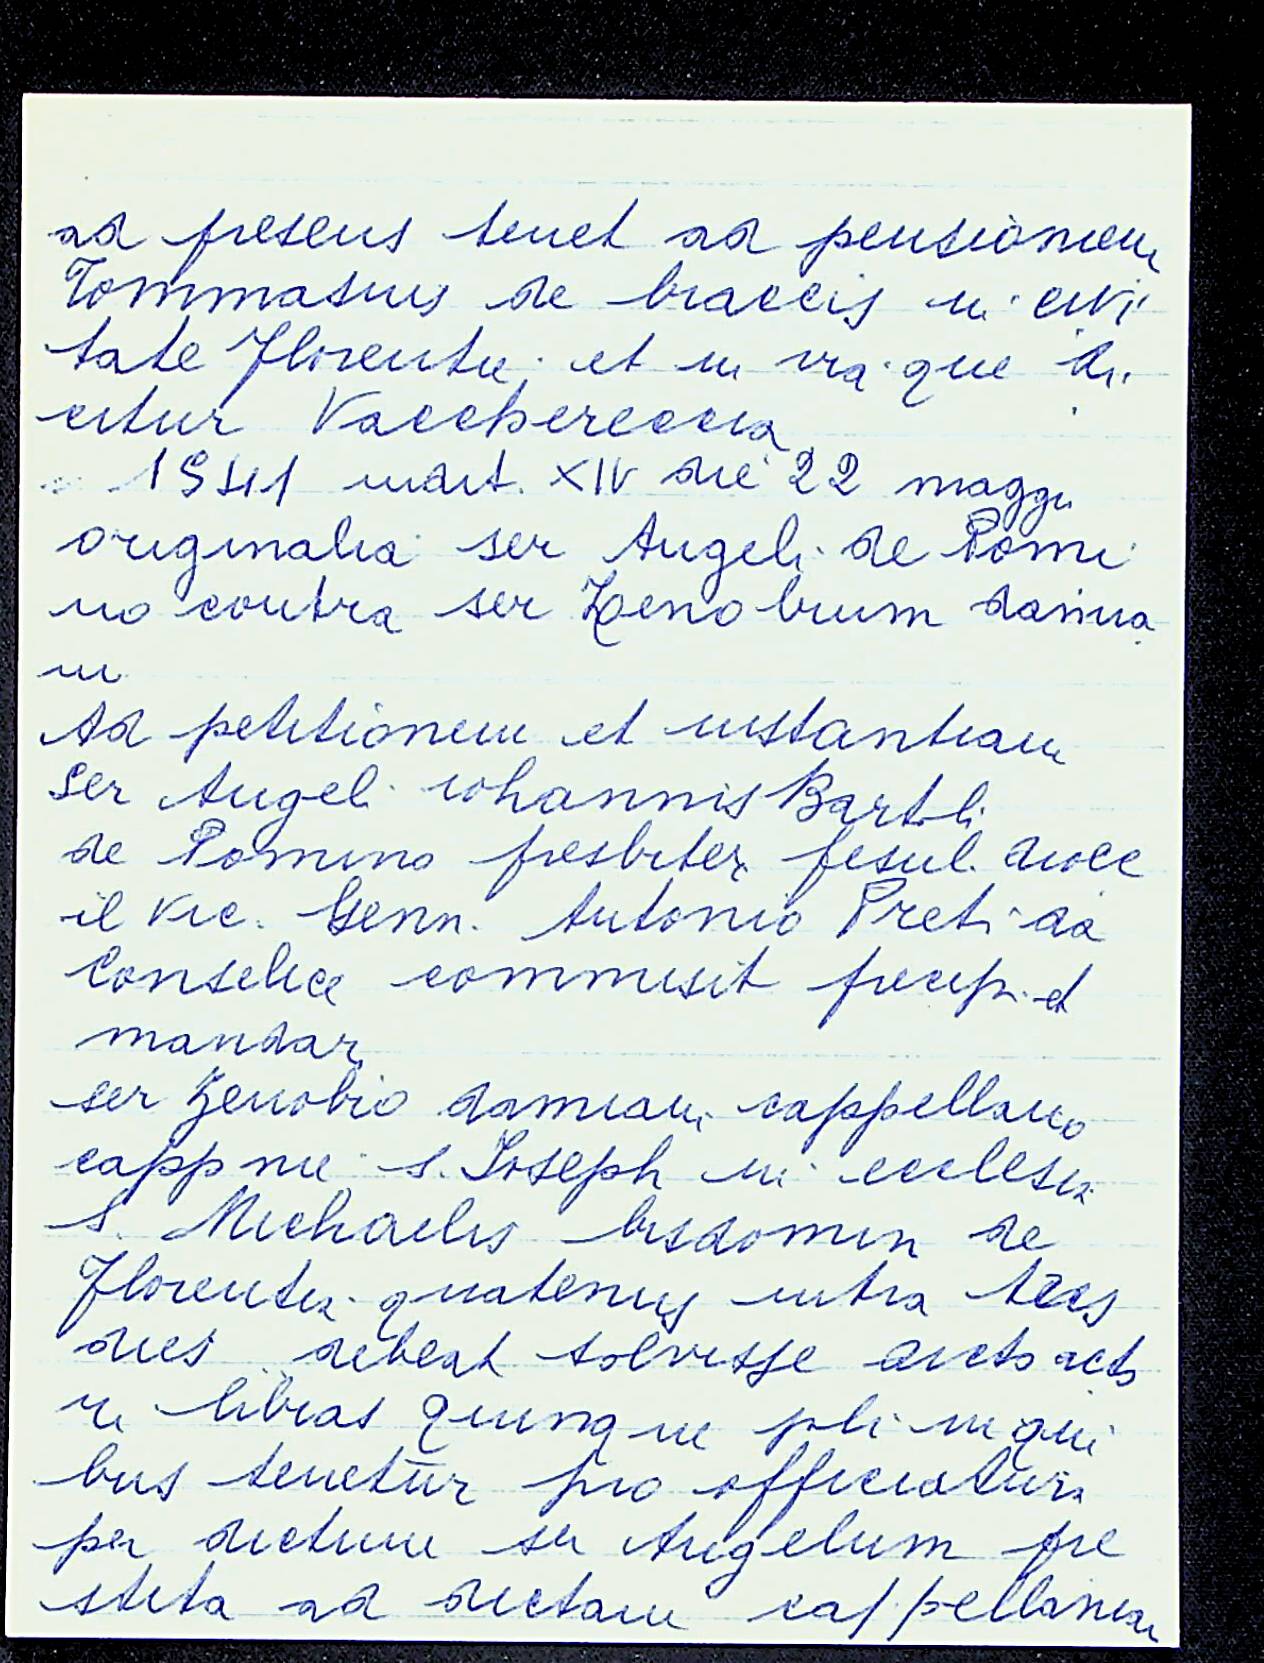 ad presens tenet ad pensionem
Tommasius de bracciis in civi
tate Florentie et in via que di
citur Vacchereccia
1541 indit. XIV die 22 maggii
originalia ser Angeli de Pomi
no contra ser Zenobium damia
ni
Ad petitionem et instantiam
Ser Angeli iohannis Bartoli
de Pomino presbiter fesul. dioce
il vic. Genn. Antonio Preti da
Conselice commisit precip. et
mandar
ser Zenobio damiani cappellano
capp nie s. Joseph in ecclesia
S. Michaelis bisdomin de
Florentia quatenus intra tres
dies debeat solvisse dicto acto
ri libras quinque pli in qui
bus tenetur pro officiatura
per dictum ser Angelum pre
stita ad dictam cappellaniam